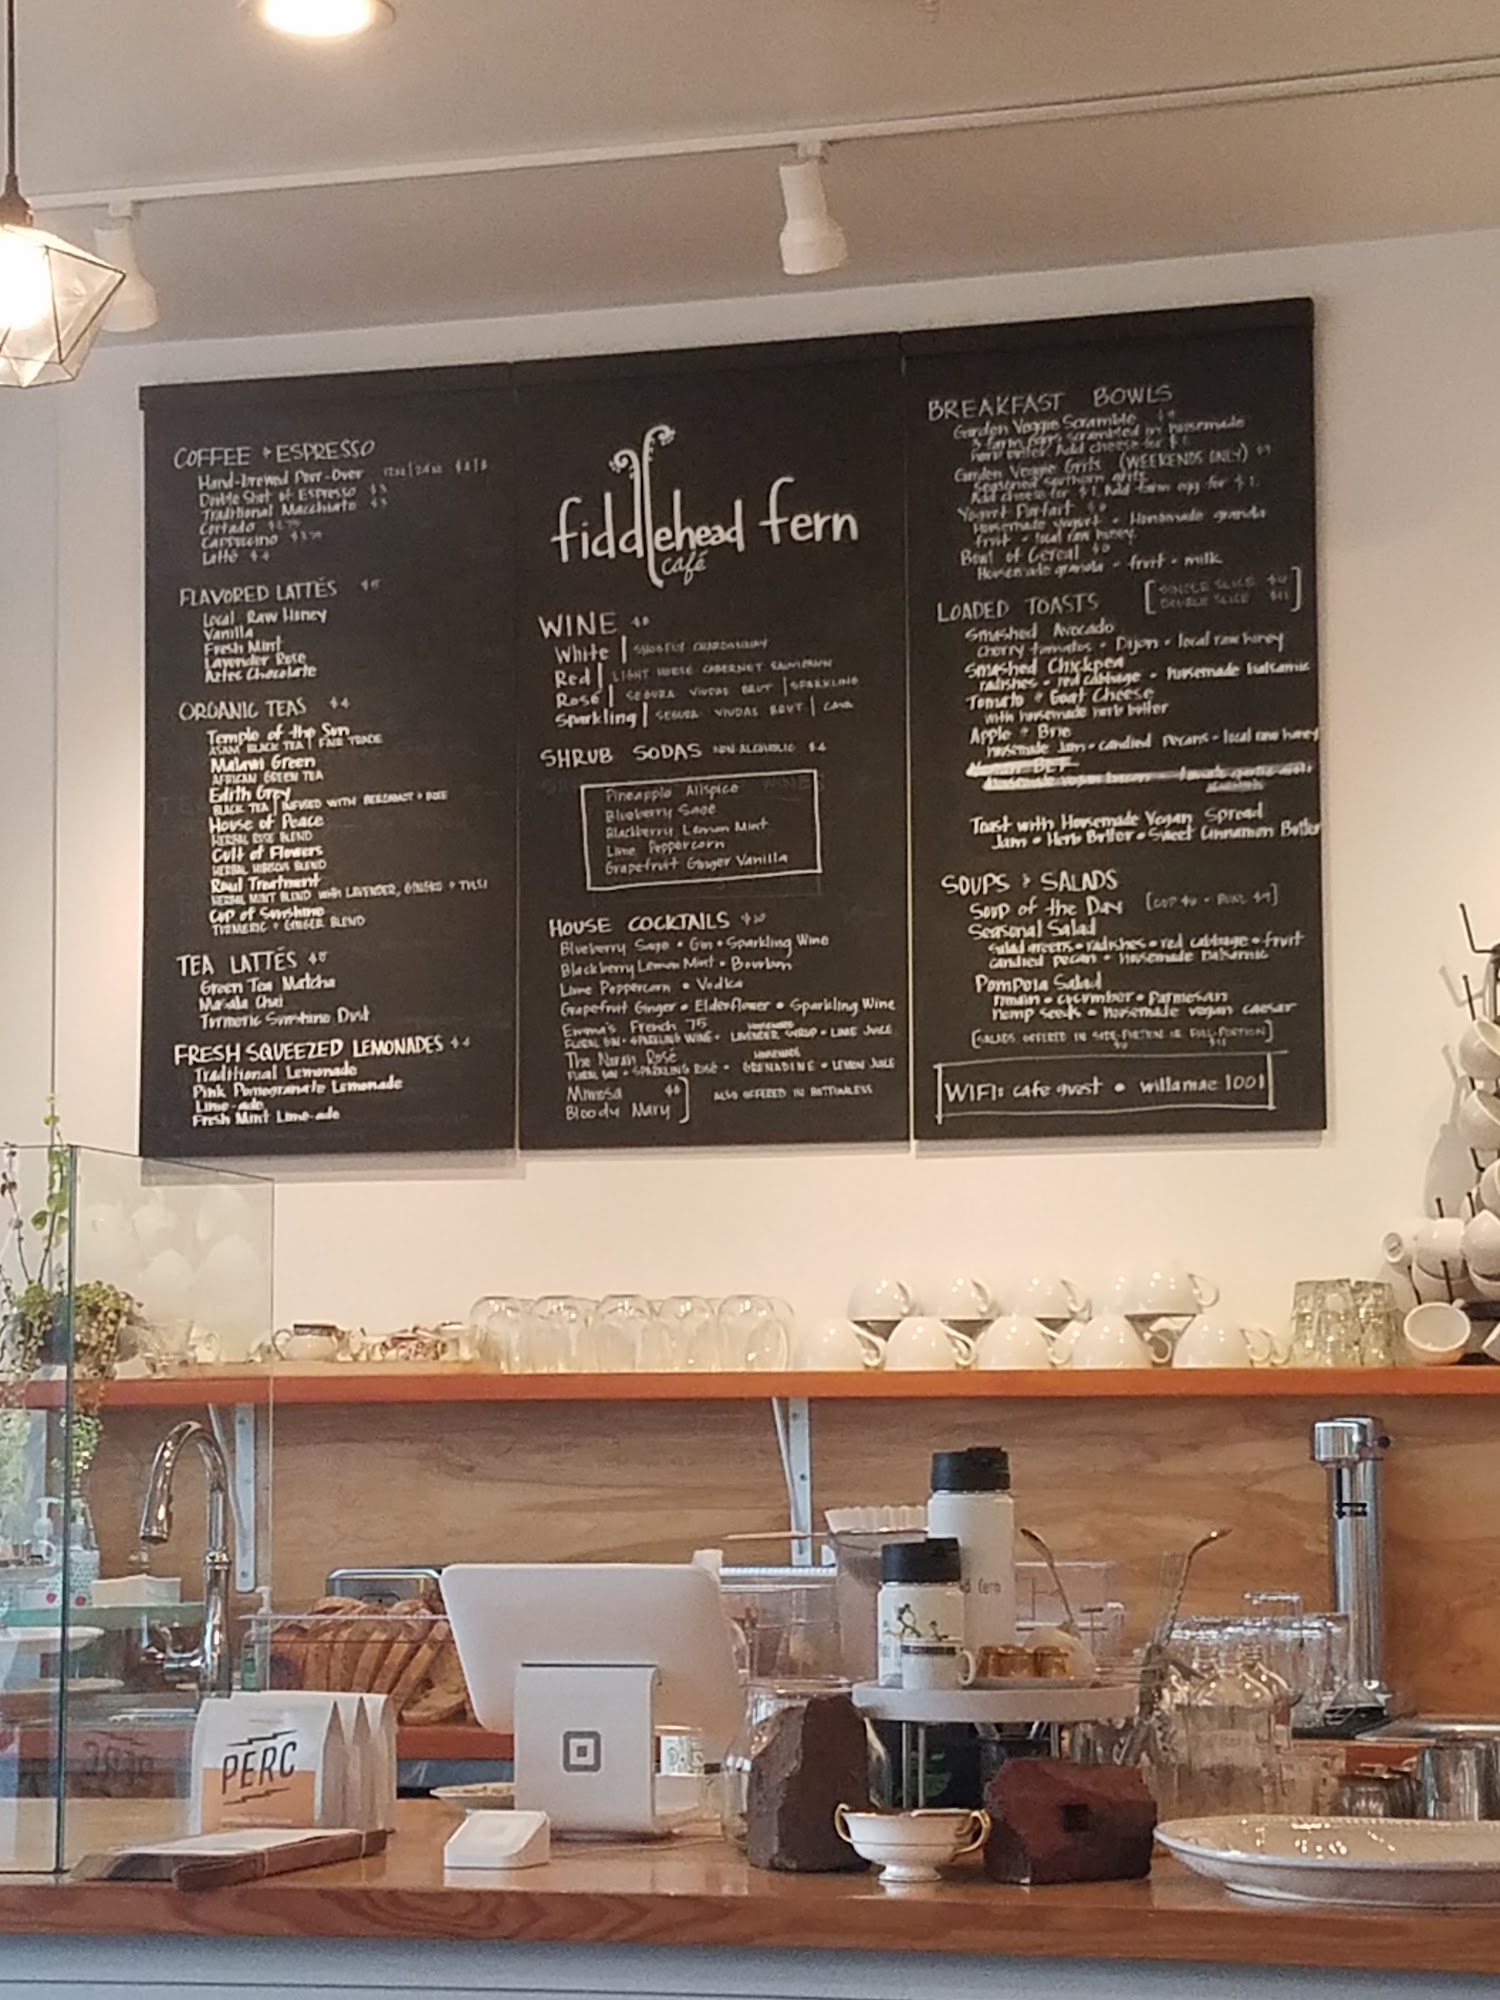 COFFEE + ESPRESSO
Hand-brewed Pour-Over
Double Shot of Espresso
Traditional Macchiato
Cortado
Cappuccino
Latté
FLAVORED LATTÉS
Local Raw Honey
Vanilla
Fresh Mint
Lavender Rose
Aztec Chocolate
ORGANIC TEAS $4
Temple of the Sun
ASSAM BLACK TEA | FAIR TRADE
Malawi Green
AFRICAN GREEN TEA
Edith Grey
BLACK TEA | INFUSED WITH BERGAMOT + ROSE
House of Peace
HERBAL ROSE BLEND
Cult of Flowers
HERBAL HIBISCUS BLEND
Raul Treatment
HERBAL MINT BLEND WITH LAVENDER, GINGER + TULSI
Cup of Sunshine
TURMERIC + GINGER BLEND
TEA LATTÉS
Green Tea Matcha
Masala Chai
Turmeric Sunshine Dust
FRESH SQUEEZED LEMONADES $4
Traditional Lemonade
Pink Pomegranate Lemonade
Lime-ade
Fresh Mint Lime-ade
fiddlehead fern
café
WINE
White | CHARDONNAY
Red | LIGHT HORSE CABERNET SAUVIGNON
Rosé | SEGURA VIUDAS BRUT | SPARKLING
Sparkling | SEGURA VIUDAS BRUT | CAVA
SHRUB SODAS NON ALCOHOLIC $4
Pineapple Allspice
Blueberry Sage
Blackberry Lemon Mint
Lime Peppercorn
Grapefruit Ginger Vanilla
HOUSE COCKTAILS $10
Blueberry Sage • Gin • Sparkling Wine
Blackberry Lemon Mint • Bourbon
Lime Peppercorn • Vodka
Grapefruit Ginger • Elderflower • Sparkling Wine
Emma's French 75
FLORAL GIN • SPARKLING WINE • HOMEMADE LAVENDER SYRUP • LIME JUICE
The Norah Rosé
FLORAL GIN • SPARKLING ROSÉ • HOMEMADE GRENADINE • LEMON JUICE
Mimosa $8
Bloody Mary ALSO OFFERED IN BOTTOMLESS
BREAKFAST BOWLS
Garden Veggie Scramble
3 farm eggs scrambled in housemade
herb butter. Add cheese for $1
Garden Veggie Grits (WEEKENDS ONLY)
Seasoned southern grits.
Add cheese for $1. Add farm egg for $1.
Yogurt Parfait
Homemade yogurt • Homemade granola
fruit • local raw honey
Bowl of Cereal
Housemade granola • fruit • milk
LOADED TOASTS
[SINGLE SLICE
DOUBLE SLICE]
Smashed Avocado
cherry tomatoes • Dijon • local raw honey
Smashed Chickpea
radishes • red cabbage • housemade balsamic
Tomato + Goat Cheese
with housemade herb butter
Apple + Brie
housemade jam • candied pecans • local raw honey
Toast with Housemade Vegan Spread
Jam • Herb Butter • Sweet Cinnamon Butter
SOUPS + SALADS
Soup of the Day
Seasonal Salad
salad greens • radishes • red cabbage • fruit
candied pecan • housemade balsamic
Pompoia Salad
romain • cucumber • Parmesan
hemp seeds • housemade vegan caesar
[SALADS OFFERED IN SIDE-PORTION OR FULL-PORTION]
WIFI: cafe guest • willamae 1001
fern
PERC